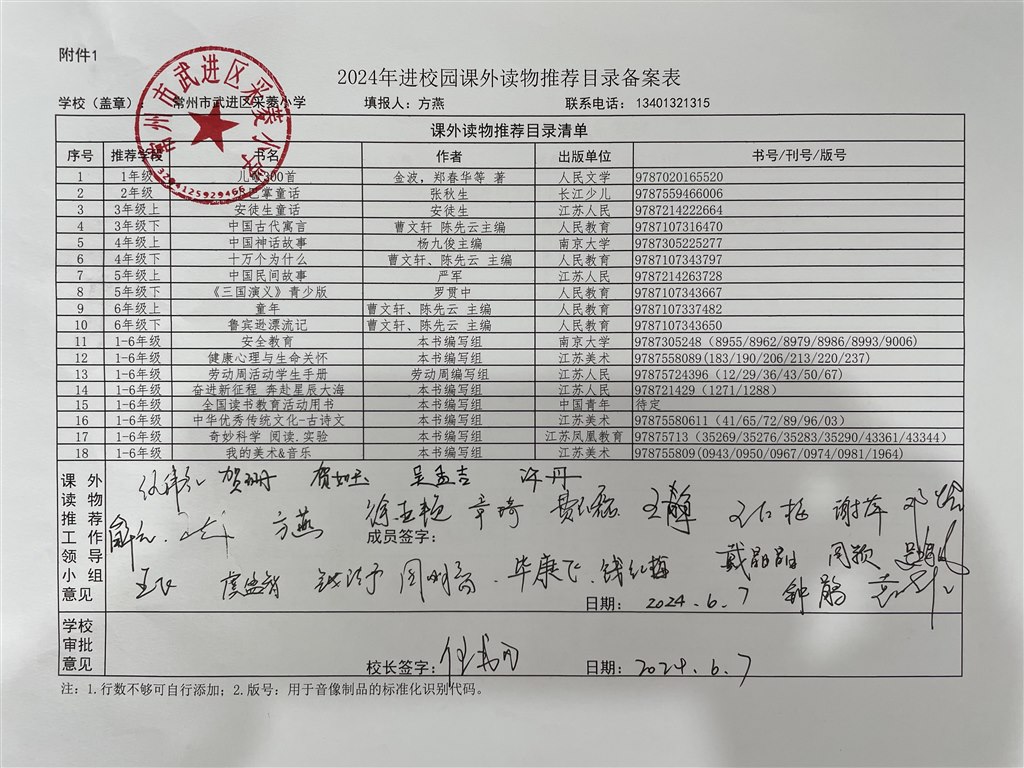 附件1
2024年进校园课外读物推荐目录备案表
学校（盖章）：常州市武进区采菱小学 填报人：方燕 联系电话：13401321315
常州市武进区采菱小学
3204125929466
课外读物推荐目录清单
序号 推荐学段 书名 作者 出版单位 书号/刊号/版号
1 1年级 儿歌300首 金波，郑春华等 著 人民文学 9787020165520
2 2年级 张秋生 长江少儿 9787559466006
3 3年级上 安徒生童话 安徒生 江苏人民 9787214222664
4 3年级下 中国古代寓言 曹文轩 陈先云主编 人民教育 9787107316470
5 4年级上 中国神话故事 杨九俊主编 南京大学 9787305225277
6 4年级下 十万个为什么 曹文轩、陈先云 主编 人民教育 9787107343797
7 5年级上 中国民间故事 严军 江苏人民 9787214263728
8 5年级下 《三国演义》青少版 罗贯中 人民教育 9787107343667
9 6年级上 童年 曹文轩、陈先云 主编 人民教育 9787107337482
10 6年级下 鲁宾逊漂流记 曹文轩、陈先云 主编 人民教育 9787107343650
11 1-6年级 安全教育 本书编写组 南京大学 9787305248（8955/8962/8979/8986/8993/9006）
12 1-6年级 健康心理与生命关怀 本书编写组 江苏美术 9787558089(183/190/206/213/220/237)
13 1-6年级 劳动周活动学生手册 劳动周编写组 江苏人民 97875724396（12/29/36/43/50/67)
14 1-6年级 奋进新征程 奔赴星辰大海 本书编写组 江苏人民 978721429（1271/1288）
15 1-6年级 全国读书教育活动用书 本书编写组 中国青年 待定
16 1-6年级 中华优秀传统文化-古诗文 本书编写组 江苏美术 97875580611（41/65/72/89/96/03）
17 1-6年级 奇妙科学 阅读.实验 本书编写组 江苏凤凰教育 97875713（35269/35276/35283/35290/43361/43344）
18 1-6年级 我的美术&音乐 本书编写组 江苏美术 978755809(0943/0950/0967/0974/0981/1964)
课外读物推荐工作领导小组意见
贺珊 贺如玉 吴孟吉 许丹
方燕 徐亚艳 章琦 王静 谢萍
成员签字：
戴晶晶 周颖
虞盛智 毕康飞 钱红梅
日期： 2024.6.7 钟鹃
学校审批意见
校长签字： 日期：2024.6.7
注：1.行数不够可自行添加；2.版号：用于音像制品的标准化识别代码。